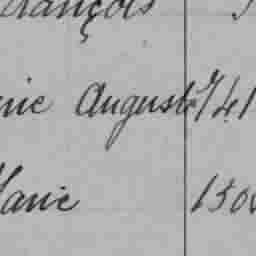 François
nie Auguste 741
Marie 1500